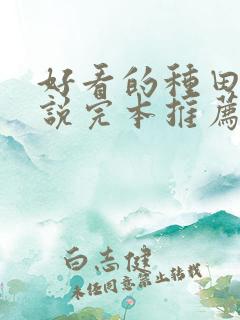 好看的種田
說完本推薦
白志健
未经同意禁止转载